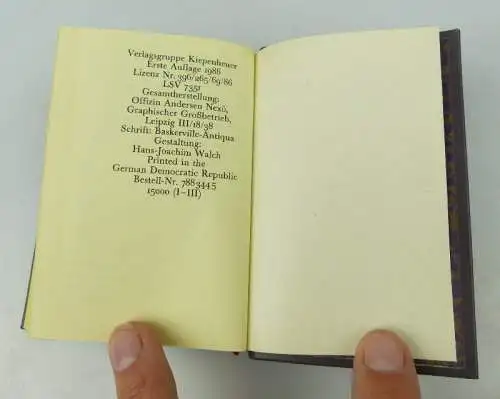 Verlagsgruppe Kiepenheuer
Erste Auflage 1986
Lizenz Nr. 396/265/69/86
LSV 7351
Gesamtherstellung:
Offizin Andersen Nexö,
Graphischer Großbetrieb,
Leipzig III/18/98
Schrift: Baskerville-Antiqua
Gestaltung:
Hans-Joachim Walch
Printed in the
German Democratic Republic
Bestell-Nr. 788 344 5
15000 (I–III)